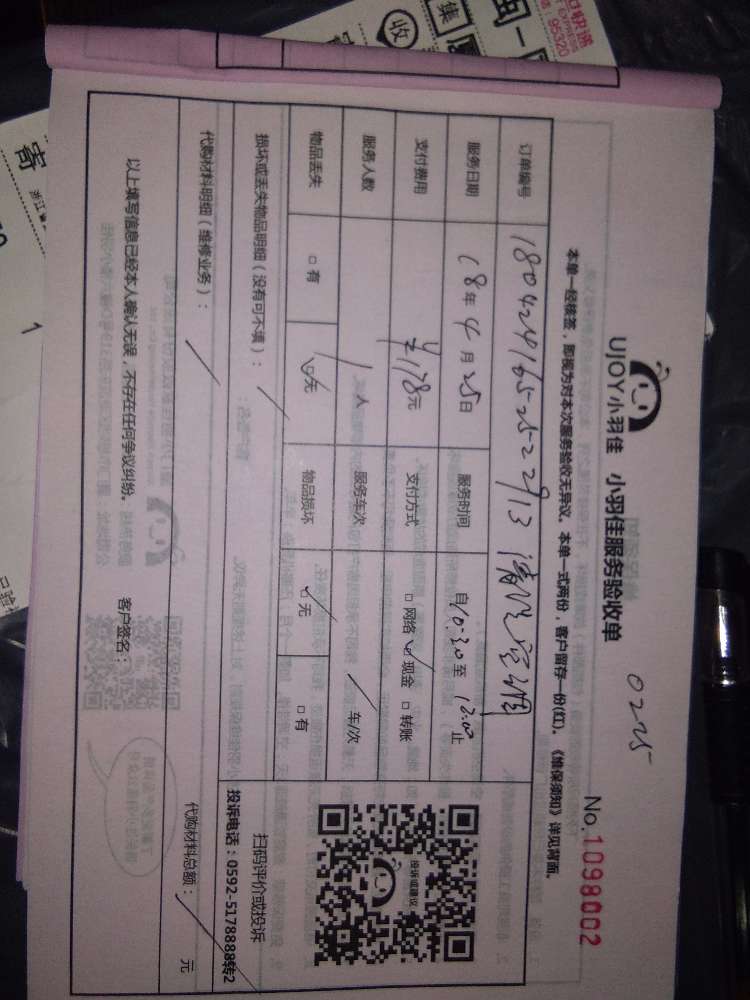 UJOY小羽佳 小羽佳服务验收单
0225
No.1098002
本单一经核签，即视为对本次服务验收无异议。本单一式两份，客户留存一份(红)。《维保须知》详见背面。
订单编号
服务日期 18年4月25日 服务时间 自10:30至12:00止
支付费用 ¥178元 支付方式 □网络 ☑现金 □转账
服务人数 1人 服务车次 / 车/次
物品丢失 □有 ☑无 物品损坏 ☑无 □有
投诉或建议
扫码评价或投诉
投诉电话：0592-5178888转2
损坏或丢失物品明细（没有可不填）： /
代购材料明细（维修业务）： / 代购材料总额： / 元
以上填写信息已经本人确认无误，不存在任何争议纠纷。 客户签名：
95320
收
集
寄